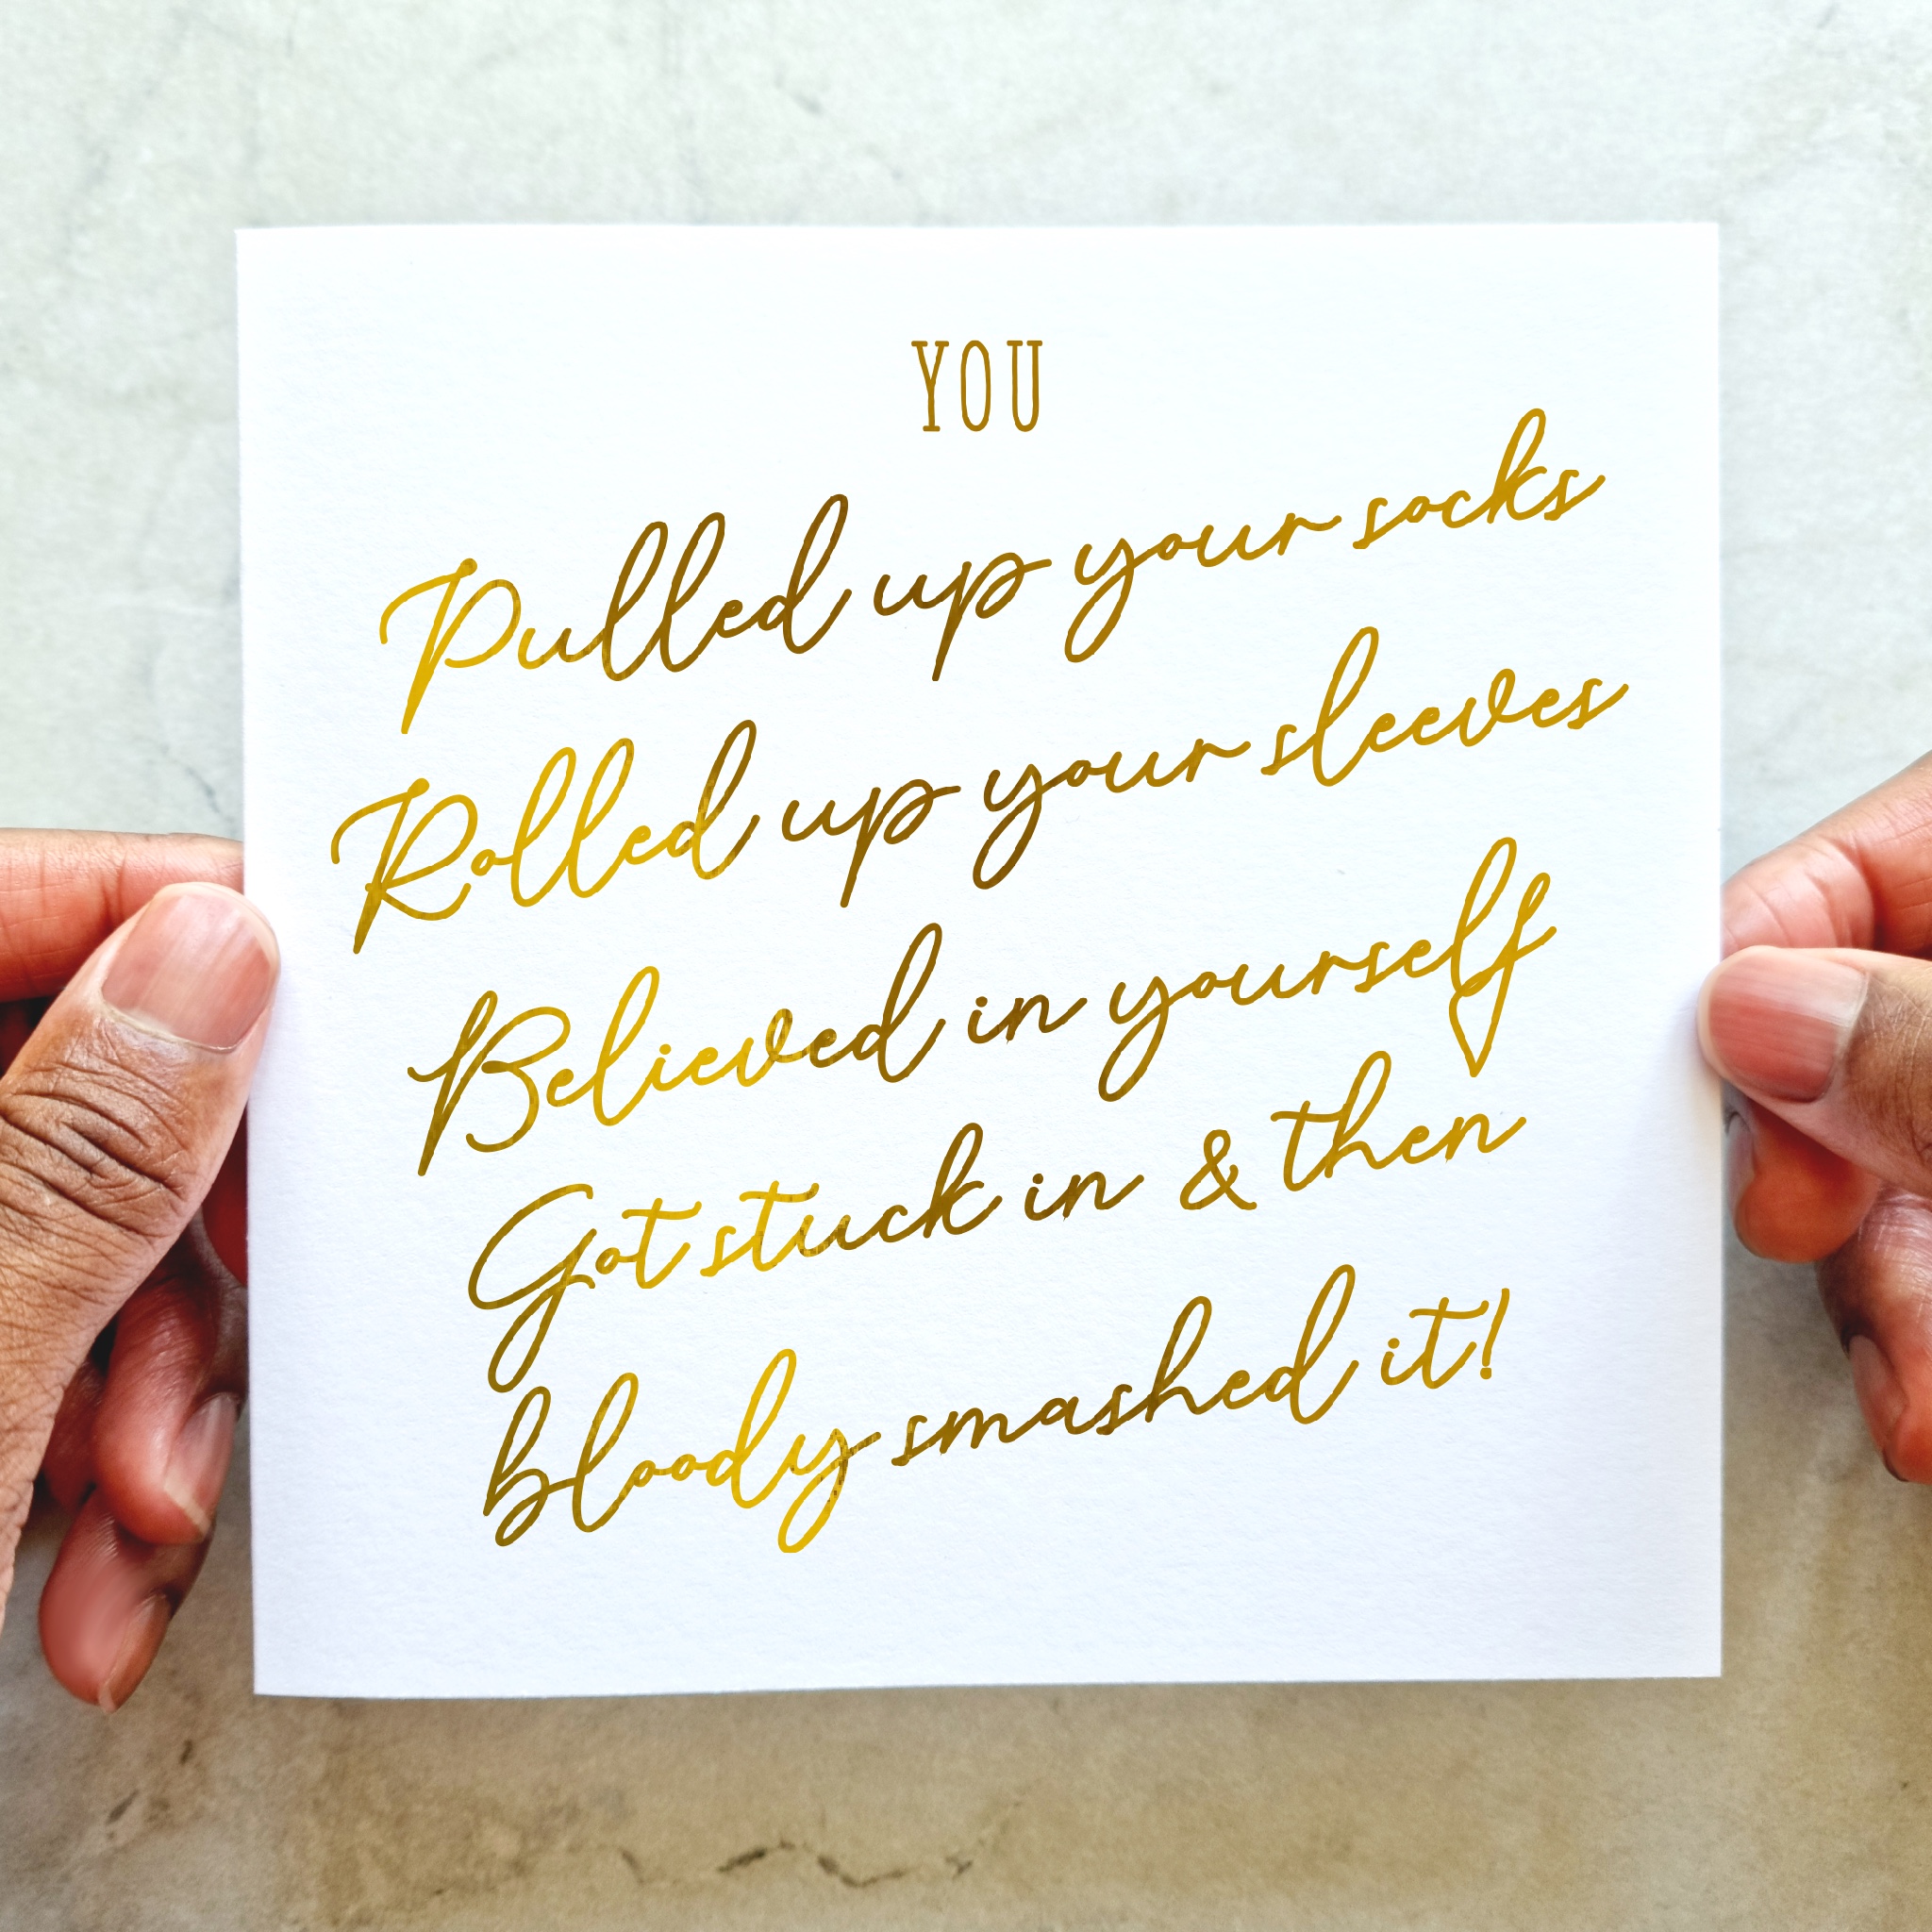 YOU
Pulled up your socks
Rolled up your sleeves
Believed in yourself
Got stuck in & then
bloody smashed it!